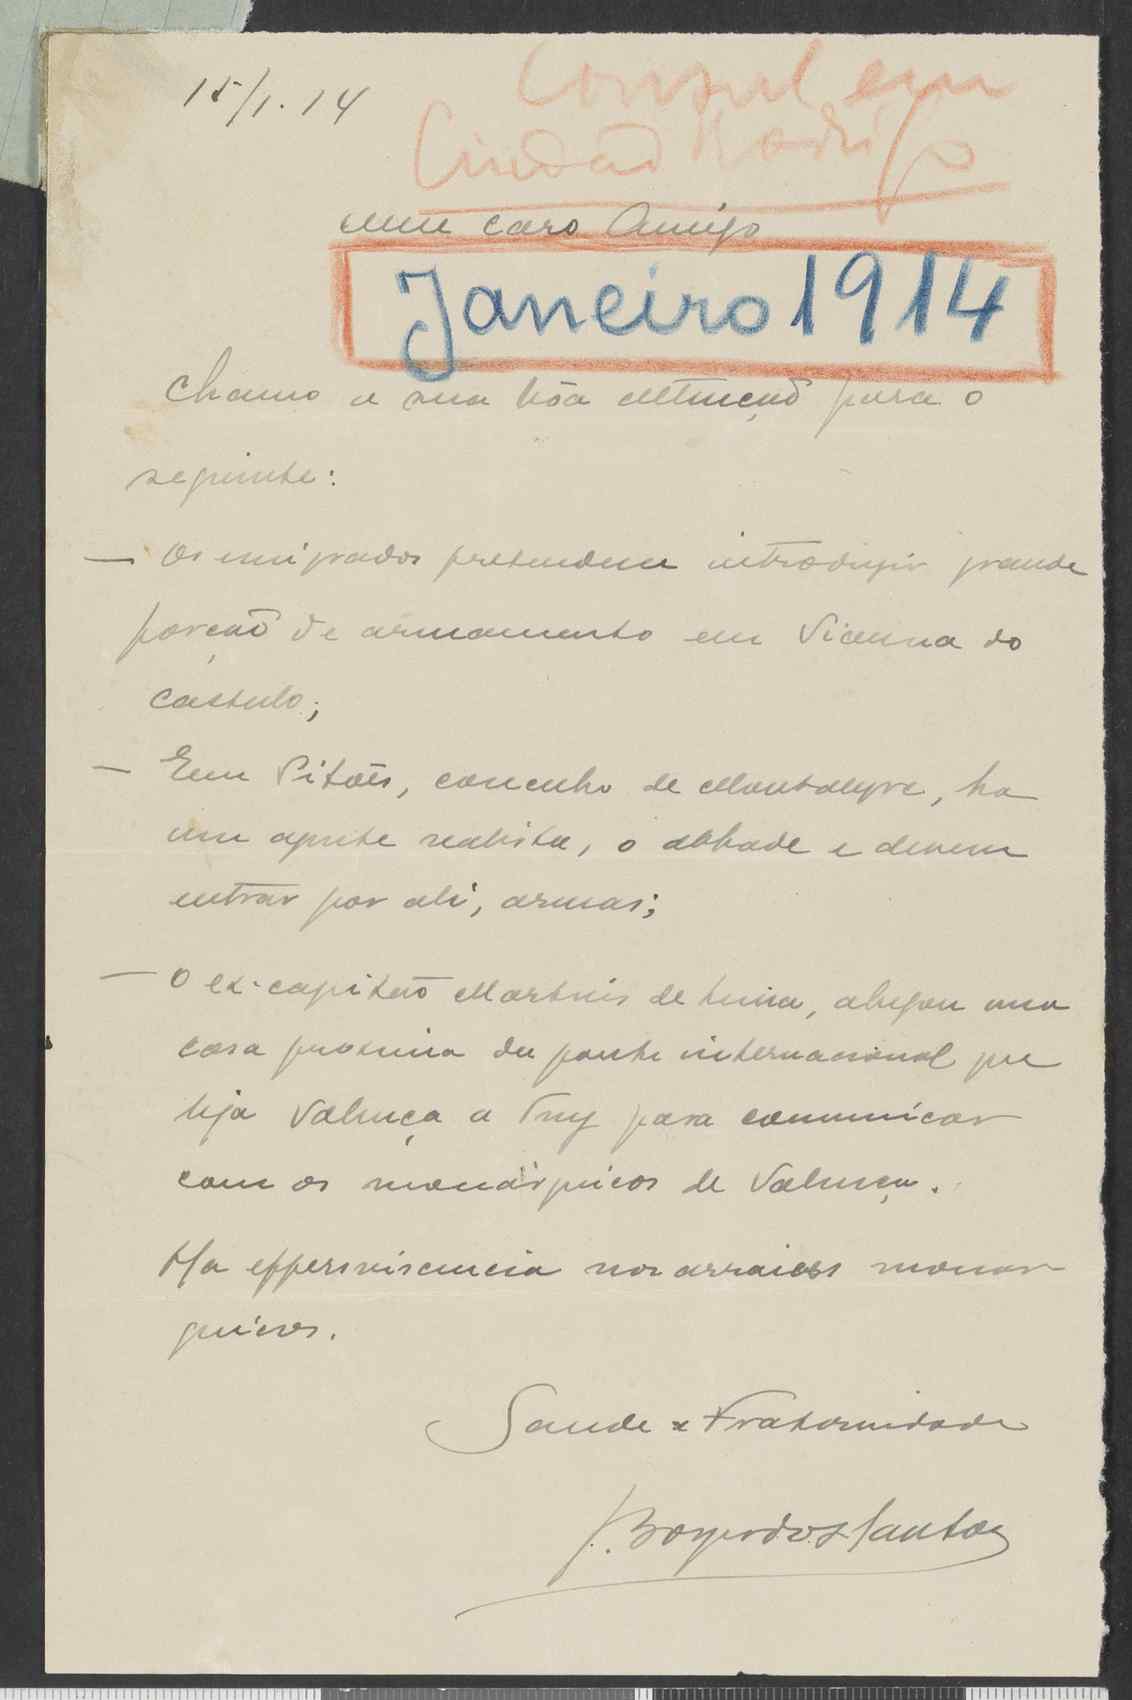 15/1.14
Consul em
Ciudad Rodrigo
Meu caro Amigo
Janeiro 1914
Chamo a sua bôa attenção para o
seguinte:
— Os emigrados pretendem introdusir grande
porção de armamento em Vianna do
Castelo;
— Em Pitões, concenho de Montalegre, ha
um agente realista, o abbade e devem
entrar por ali, armas;
— O ex-capitão Martins de Lima, alugou uma
casa proxima da ponte internacional que
liga Valença a Tuy para comunicar
com os monárquicos de Valença.
Ha efferviscencia nos arraiaes monar
quicos.
Saude e Fraternidade
J. dos Santos